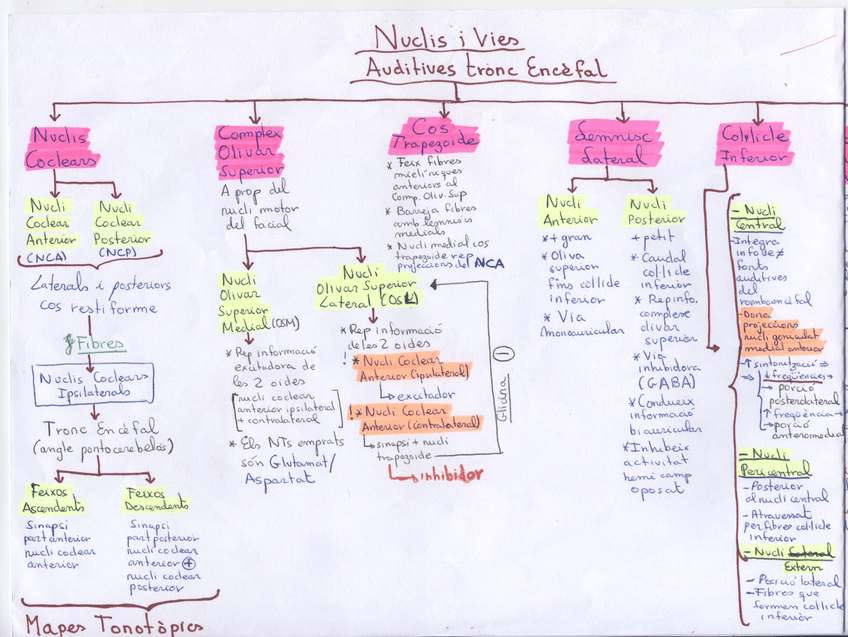 Nuclis i Vies
Auditives tronc Encèfal
Nuclis
Coclears
Nucli
Coclear
Anterior
(NCA)
Nucli
Coclear
Posterior
(NCP)
Laterals i posteriors
cos restiforme
Fibres
Nuclis Coclears
Ipsilaterals
Tronc Encèfal
(angle pontocerebelós)
Feixos
Ascendents
Sinapsi
part anterior
nucli coclear
anterior
Feixos
Descendents
Sinapsi
part posterior
nucli coclear
anterior +
nucli coclear
posterior
Mapes Tonotòpics
Complex
Olivar
Superior
A prop del
nucli motor
del facial
Nucli
Olivar
Superior
Medial (OSM)
* Rep informació
excitadora de
les 2 oides
nucli coclear
anterior ipsilateral
+ contralateral
* Els NTs emprats
són Glutamat/
Aspartat
Nucli
Olivar Superior
Lateral (OSL)
* Rep informació
de les 2 oides
! * Nucli Coclear
Anterior (ipsilateral)
excitador
! * Nucli Coclear
Anterior (contralateral)
sinapsi + nucli
trapezoide
inhibidor
Glicina
Cos
Trapezoide
* Feix fibres
mielíniques
anteriors al
Comp. Oliv. Sup
* Barreja fibres
amb lemnisc
medials
* Nucli medial cos
trapezoide rep
projeccions del NCA
Lemnisc
Lateral
Nucli
Anterior
* + gran
* Oliva
superior
fins col·licle
inferior
* Via
monoauricular
Nucli
Posterior
+ petit
* Caudal
col·licle
inferior
* Rep info.
complexe
olivar
superior
* Via
inhibidora
(GABA)
* Condueix
informació
biauricular
* Inhibeix
activitat
hemicamp
oposat
Col·licle
Inferior
- Nucli
Central
- Integra
info de ≠
fonts
auditives
del
romboencèfal
- Dona
projeccions
nucli geniculat
medial anterior
↑ sintonització ⇒
⇒ ↓ freqüències →
porció
posterolateral
↑ freqüència →
porció
anteromedial
- Nucli
Pericentral
- Posterior
al nucli central
- Atravessat
per fibres col·licle
inferior
- Nucli Lateral
Extern
- Posició lateral
- Fibres que
formen col·licle
inferior